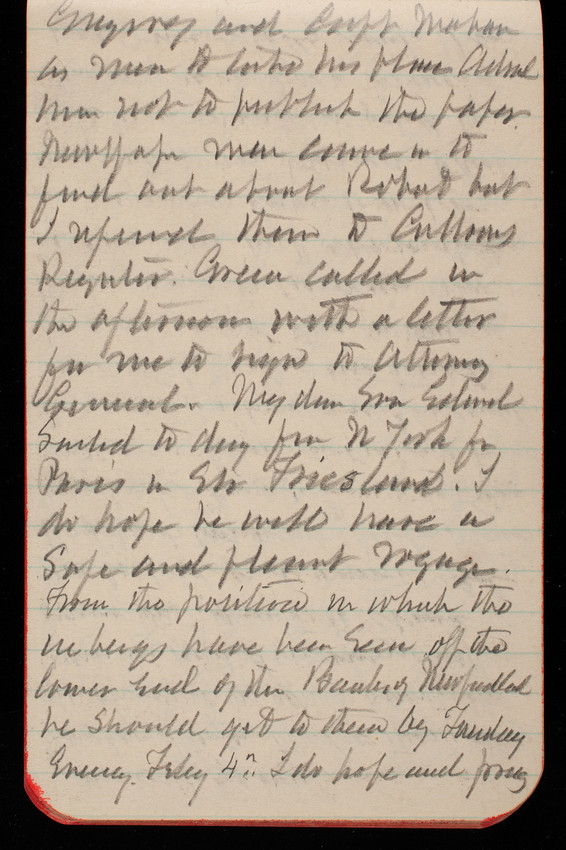 and Capt Mahan
as men to take his place
men not to publish the paper.
Newspaper men came in to
find out about Robert but
I referred them to Customs
Register. Green called in
the afternoon with a letter
for me to sign to Attorney
General. My dear Son
Sailed to day from N York for
Paris in Str Friesland. I
do hope he will have a
Safe and pleasant voyage.
From the position in which the
ice bergs have been Seen off the
lower end of the Banks of Newfoundland
he should get to them by
Evening. Feby 4th I do hope and pray